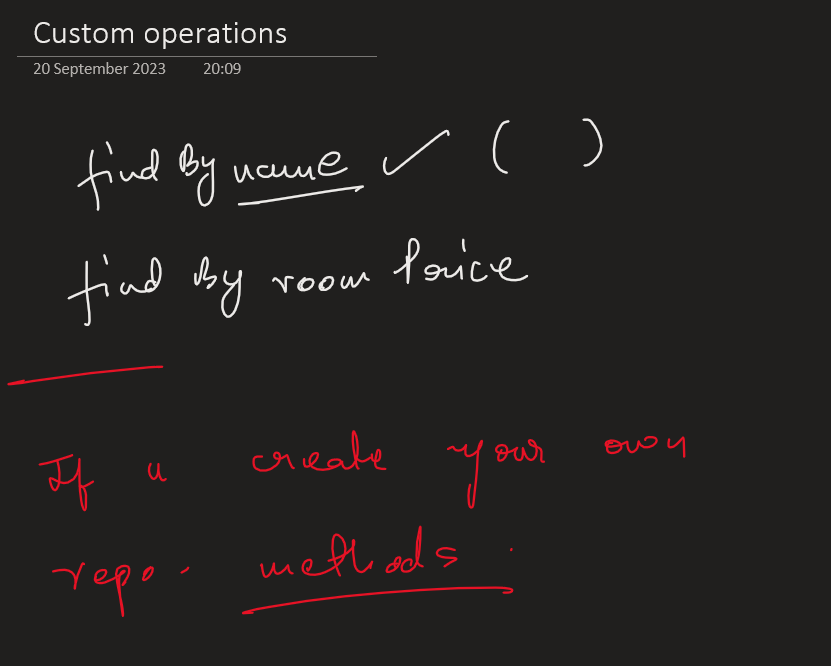 Custom operations
20 September 2023 20:09
find By name ✓ ( )
find By room Price
If u create your own
repo. methods.